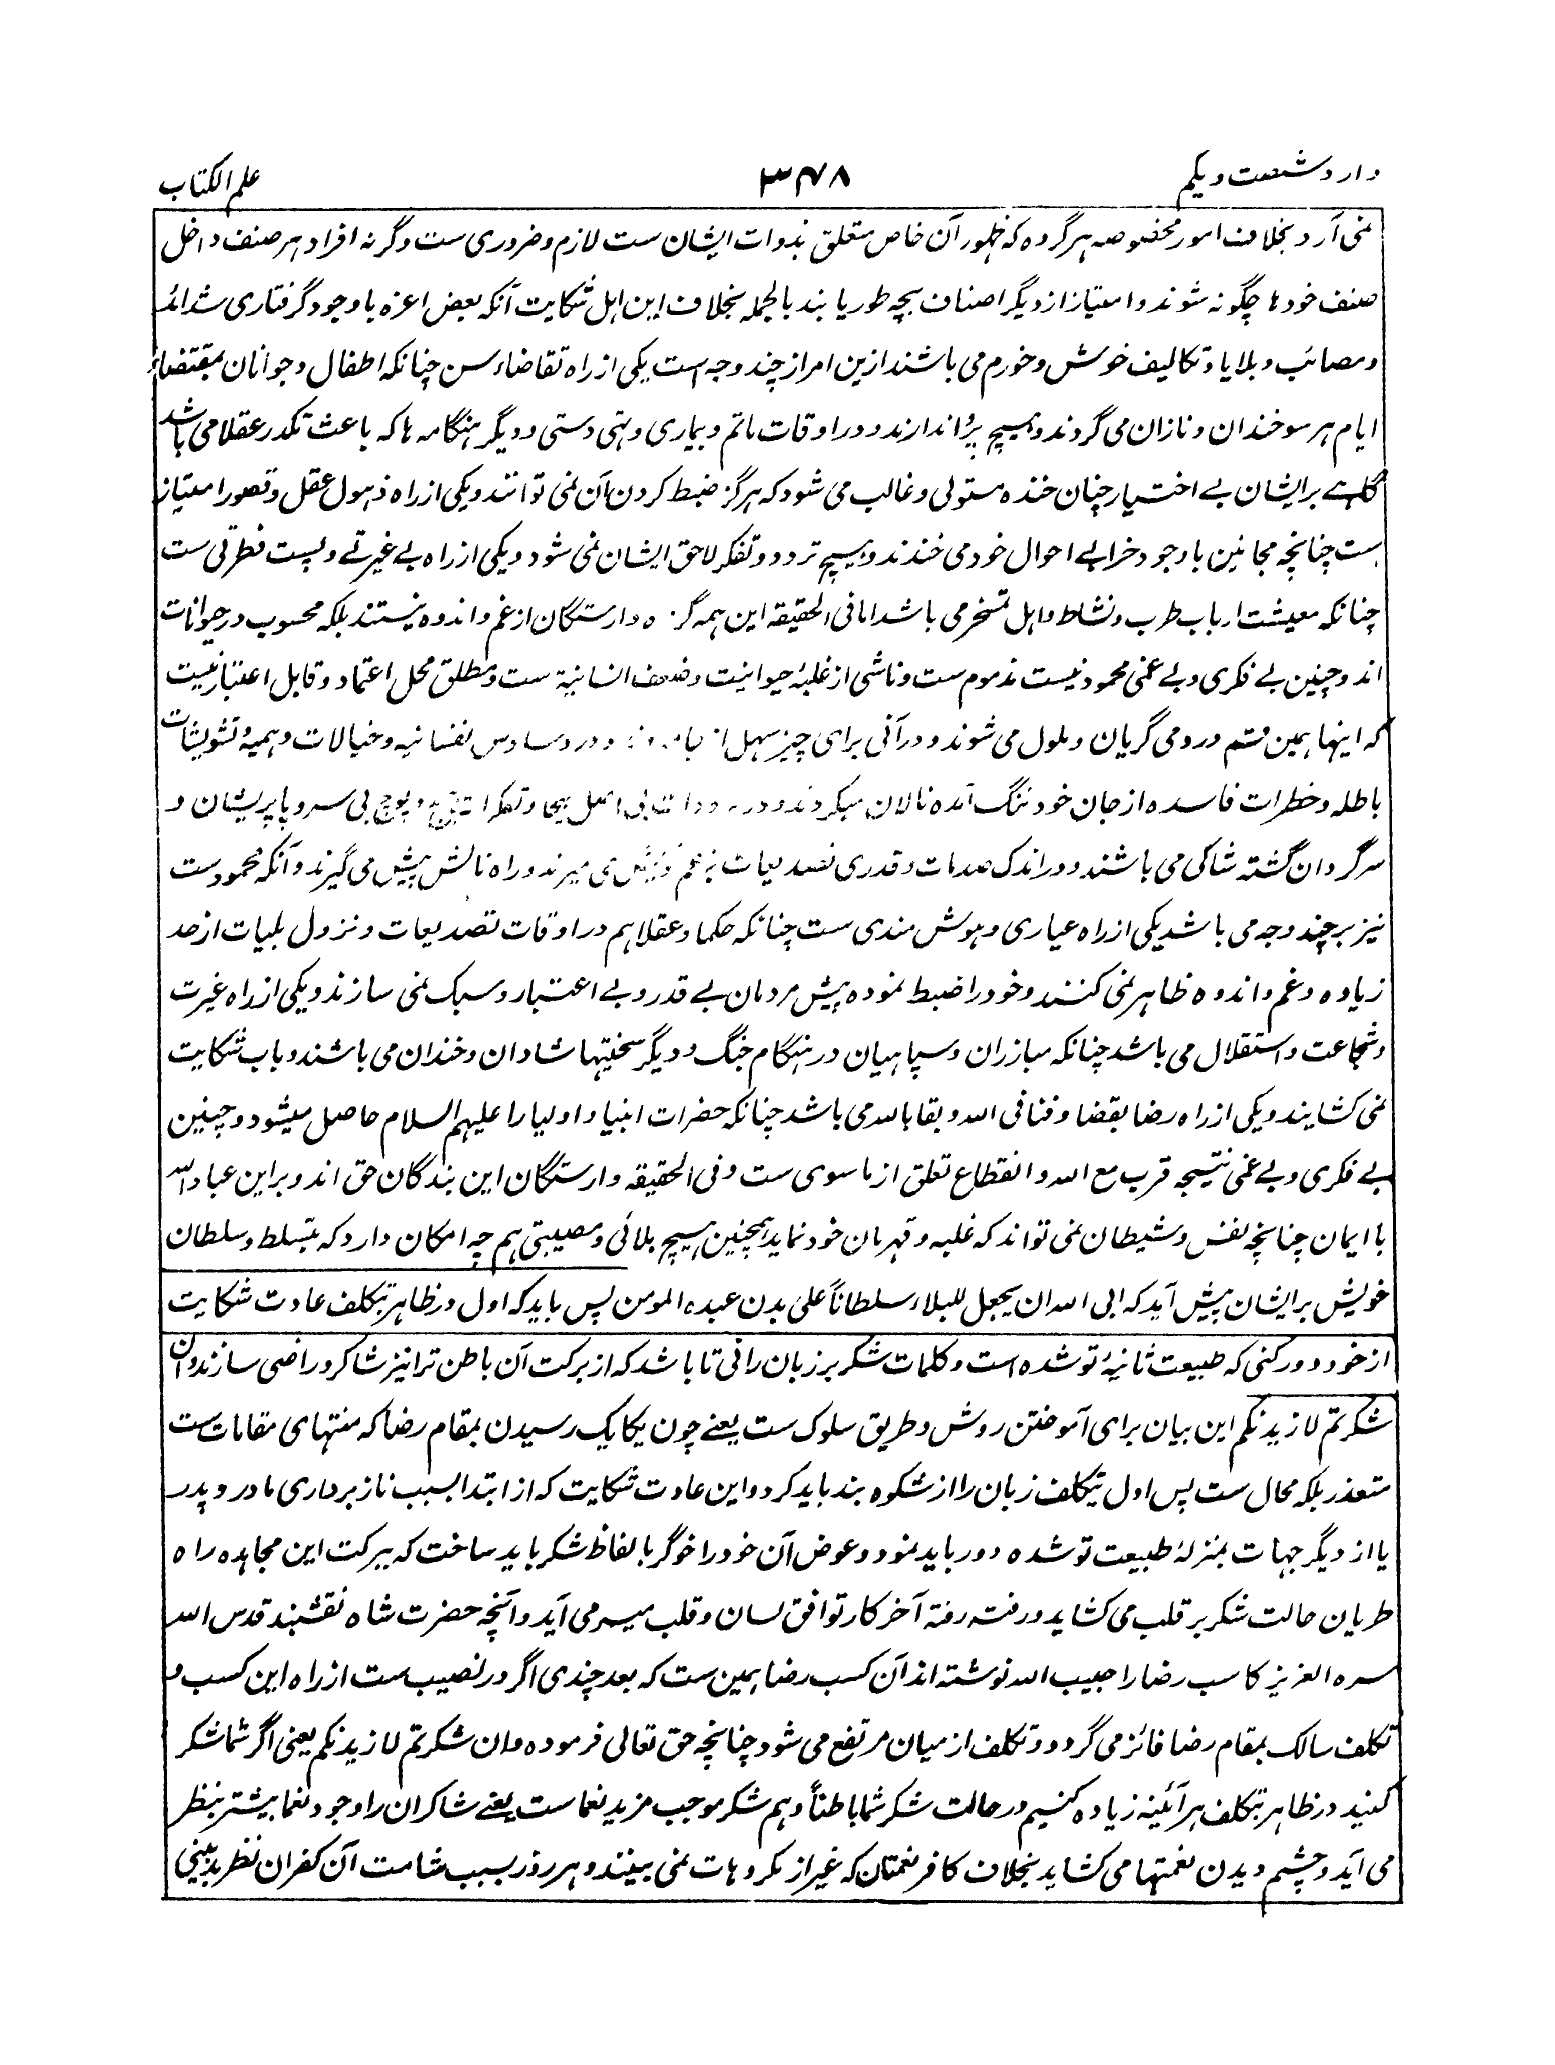 وارد شصت و یکم
۳۴۸
علم الکتاب
نمی آرد بخلاف امور مخصوصه هر گروه که ظهور آن خاص متعلق بذوات ایشان ست لازم و ضروری ست وگرنه افراد هر صنف داخل
صنف خودها چگونه شوند و امتیاز از دیگر اصناف بچه طور یابند بالجمله بخلاف این اهل شکایت آنکه بعض اعزه باوجود گرفتاری شدائد
و مصائب و بلایا و تکالیف خوش و خورم می باشند ازین امر از چند وجه است یکی از راه تقاضاء سن چنانکه اطفال و جوانان بمقتضاء
ایام هر سو خندان و نازان می گردند و هیچ پروا ندارند و در اوقات ماتم و بیماری و تهی دستی و دیگر هنگامه ها که باعث تکدر عقلا می باشد
گاهے بر ایشان بے اختیار چنان خنده مستولی و غالب می شود که هرگز ضبط کردن آن نمی توانند و یکی از راه ذهول عقل و قصور امتیاز
ست چنانچه مجانین باوجود خرابے احوال خود می خندند و هیچ تردد و تفکر لاحق ایشان نمی شود و یکی از راه بے غیرتے و پست فطرتی ست
چنانکه معیشت ارباب طرب و نشاط و اهل تمسخر می باشد اما فی الحقیقه این همه گروه وارستگان از غم و اندوه نیستند بلکه محسوب در حیوانات
اند و چنین بے فکری و بے غمی محمود نیست مذموم ست و ناشی از غلبۀ حیوانیت و ضعف انسانیة ست و مطلق محل اعتماد و قابل اعتبار نیست
که اینها همین قسم در ومی گریان و ملول می شوند و در آنی برای چیز سهل از و در وساوس نفسانیه و خیالات وهمیۀ تشویشات
باطله و خطرات فاسده از جان خود تنگ آمده نالان میگردند و در بی اصل بیجا و تفکرات و پوچ بی سر و پا پریشان و
سرگردان گشته شاکی می باشند و در اندک صدمات و قدری تصدیعات می میرند و راه نالش پیش می گیرند و آنکه محمود ست
نیز بر چند وجه می باشد یکی از راه عیاری و هوش مندی ست چنانکه حکما و عقلا هم در اوقات تصدیعات و نزول بلیات از حد
زیاده و غم و اندوه ظاهر نمی کنند و خود را ضبط نموده پیش مردمان بے قدر و بے اعتبار و سبک نمی سازند و یکی از راه غیرت
و شجاعت و استقلال می باشد چنانکه مبارزان و سپاهیان در هنگام جنگ و دیگر سختیها شادان و خندان می باشند و باب شکایت
نمی کشایند و یکی از راه رضا بقضا و فنا فی الله و بقا بالله می باشد چنانکه حضرات انبیا و اولیا را علیهم السلام حاصل میشود و چنین
بے فکری و بے غمی نتیجه قرب مع الله و انقطاع تعلق از ماسوی ست و فی الحقیقه وارستگان این بندگان حق اند و بر این عباد الله
با ایمان چنانچه نفس و شیطان نمی تواند که غلبه و قهرمان خود نماید همچنین هیچ بلائی و مصیبتی هم چه امکان دارد که بتسلط و سلطان
خویش بر ایشان پیش آید که ابی الله ان یجعل للبلاء سلطاناً علی بدن عبده المومن پس باید که اول در ظاهر بتکلف عادت شکایت
از خود دور کنی که طبیعت ثانیۀ تو شده است و کلمات شکر بر زبان رانی تا باشد که از برکت آن باطن ترا نیز شاکر و راضی سازند و ان
شکرتم لازیدنکم این بیان برای آموختن روش و طریق سلوک ست یعنے چون یکایک رسیدن بمقام رضا که منتهای مقامات ست
متعذر بلکه محال ست پس اول بتکلف زبان را از شکوه بند باید کرد و این عادت شکایت که از ابتدا بسبب نازبرداری مادر و پدر
یا از دیگر جهات بمنزلۀ طبیعت تو شده دور باید نمود و عوض آن خود را خوگر بالفاظ شکر باید ساخت که ببرکت این مجاهده راه
طریان حالت شکر بر قلب می کشاید و رفته رفته آخر کار توافق لسان و قلب میسر می آید و آنچه حضرت شاه نقشبند قدس الله
سره العزیز کاسب رضا را حبیب الله نوشته اند آن کسب رضا همین ست که بعد چندی اگر در نصیب ست از راه این کسب و
تکلف سالک بمقام رضا فائز می گردد و تکلف از میان مرتفع می شود چنانچه حق تعالی فرموده و ان شکرتم لازیدنکم یعنی اگر شما شکر
کنید در ظاهر بتکلف هر آئینه زیاده کنیم در حالت شکر شما باطناً و هم شکر موجب مزید نعما ست یعنے شاکران را وجود نعما بیشتر بنظر
می آید و چشم دیدن نعمتها می کشاید بخلاف کافر نعمتان که غیر از مکروهات نمی بینند و هر روز بسبب شامت آن کفران نظر بد بینی